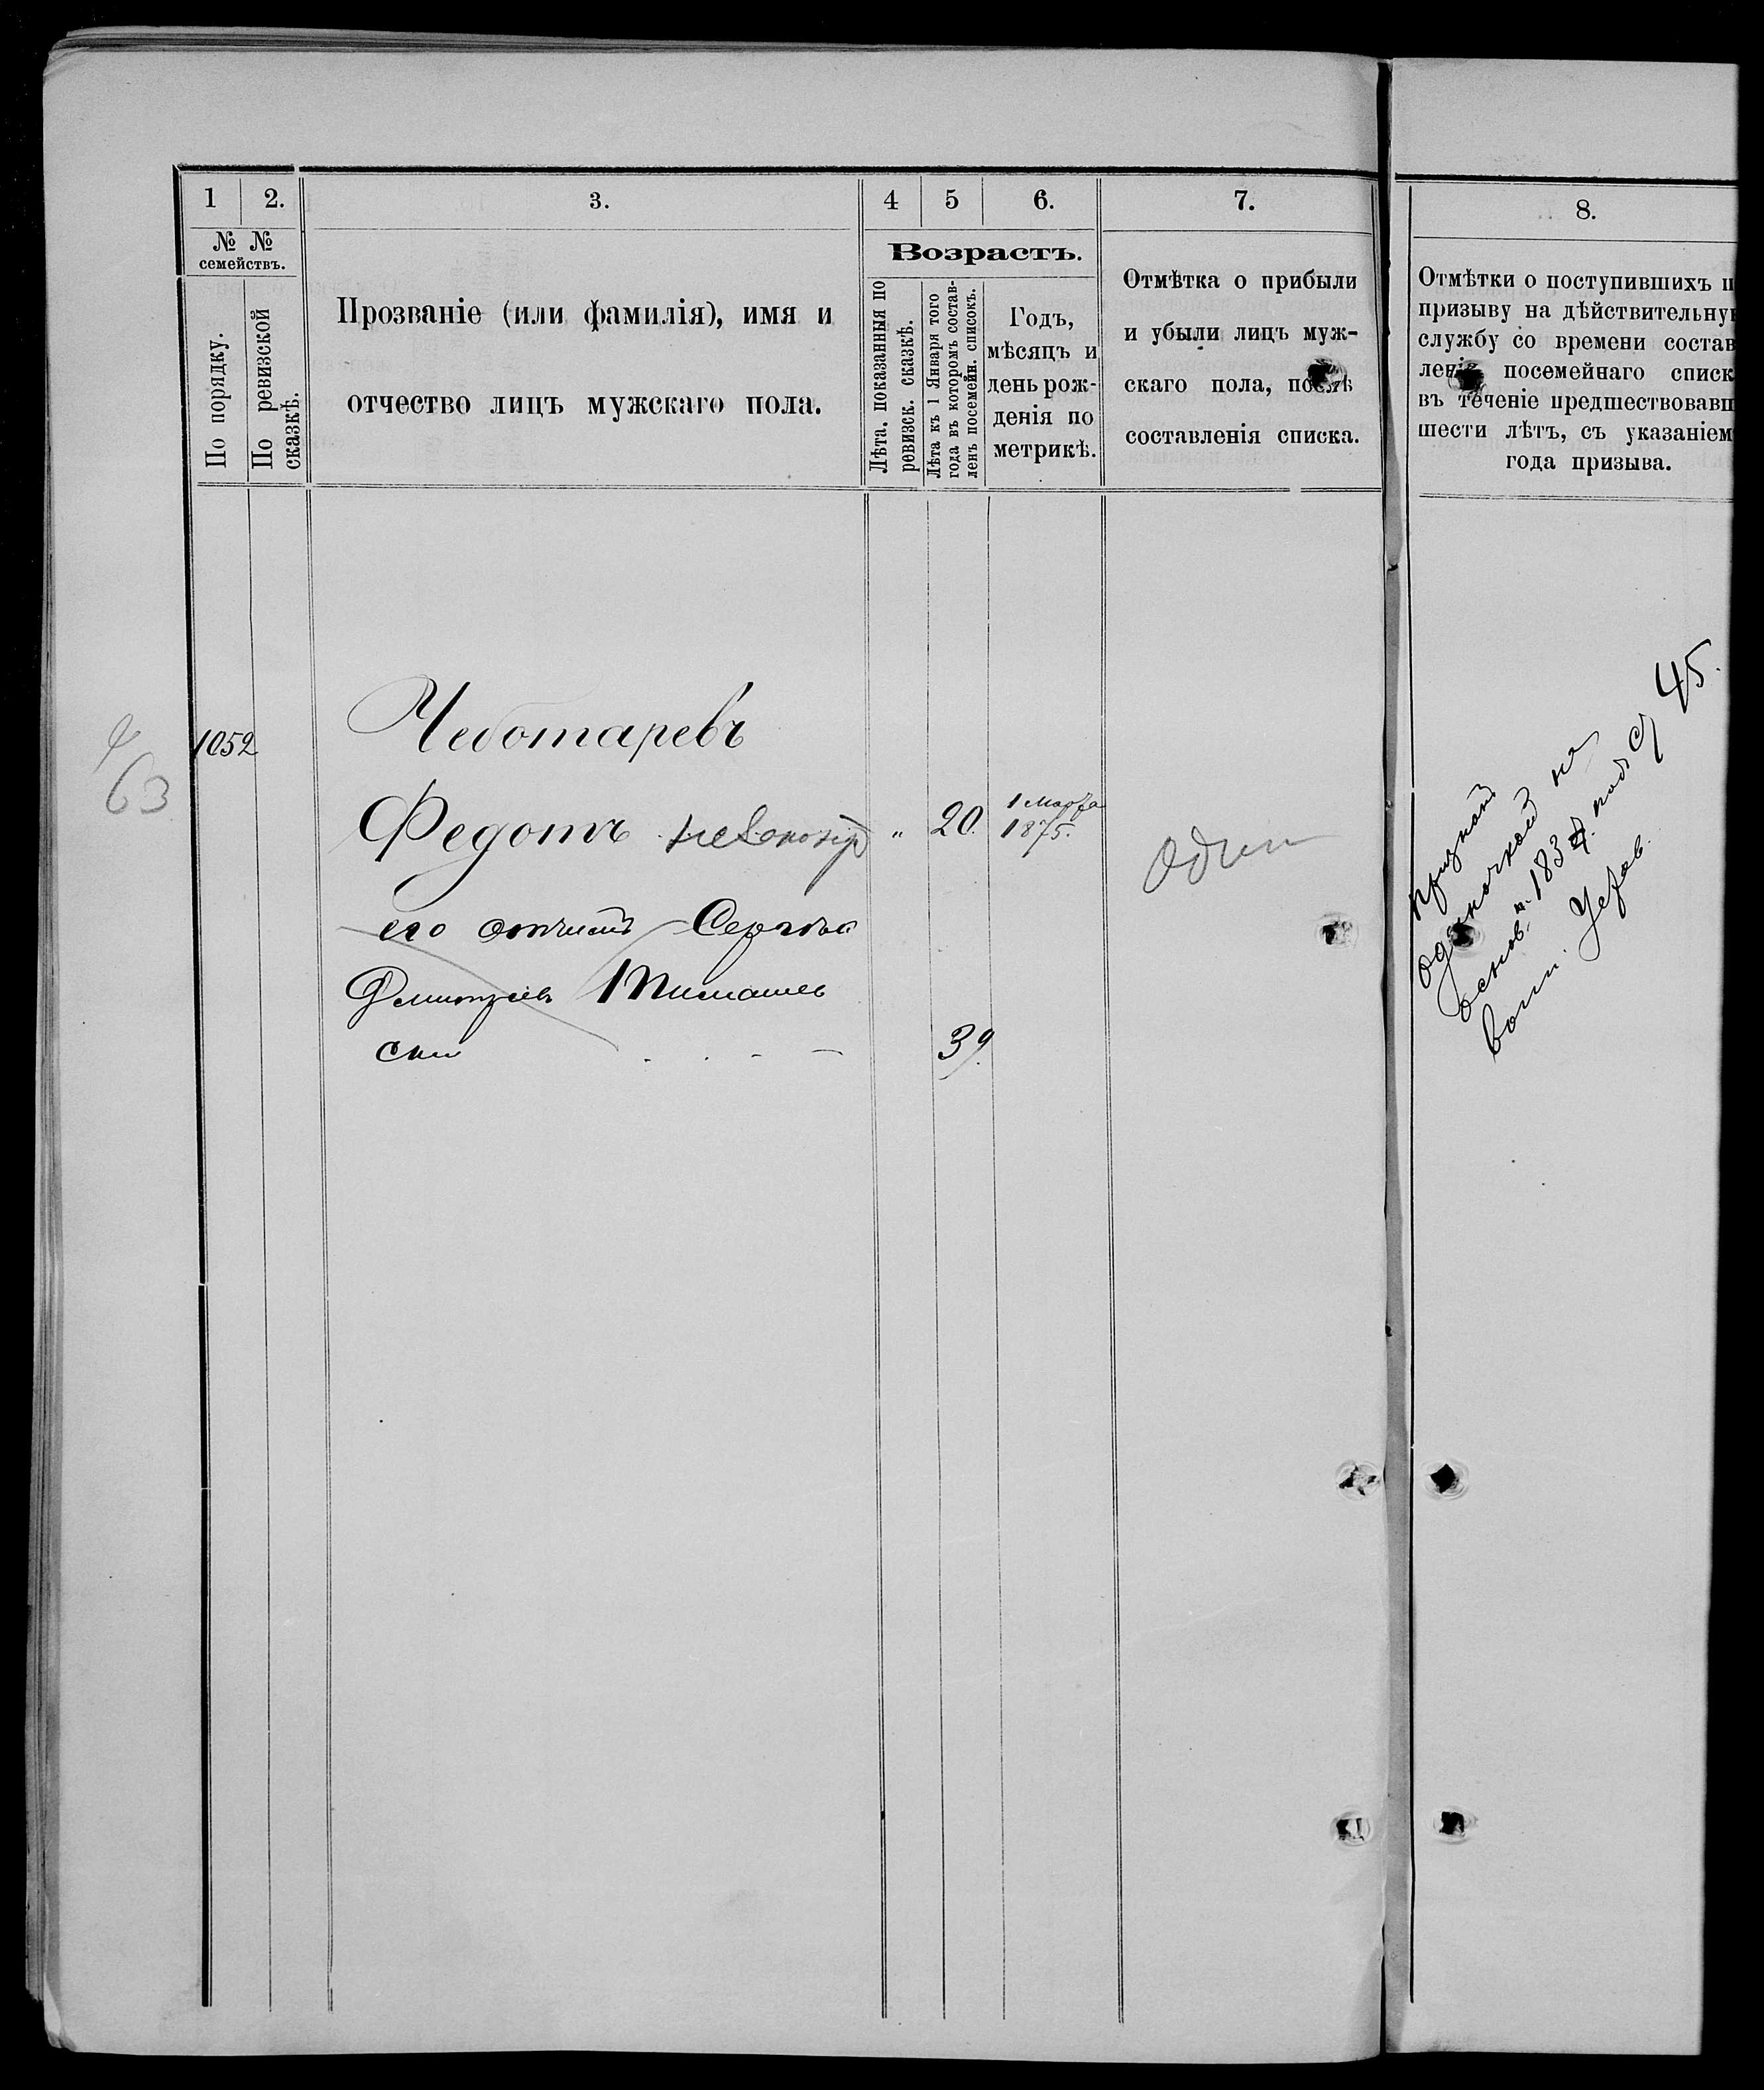 1
2.
3.
4
5
6.
7.
8.
№ №
семействъ.
По порядку.
По ревизской
сказкѣ.
Прозваніе (или фамилія), имя и
отчество лицъ мужскаго пола.
Возрастъ.
Лѣта, показанныя по
ревизск. сказкѣ.
Лѣта къ 1 Января того
года въ которомъ состав-
ленъ посемейн. списокъ.
Годъ,
мѣсяцъ и
день рож-
денія по
метрикѣ.
Отмѣтка о прибыли
и убыли лицъ муж-
скаго пола, послѣ
составленія списка.
Отмѣтки о поступившихъ п
призыву на дѣйствительну
службу со времени состав
ленія посемейнаго списк
въ теченіе предшествовавш
шести лѣтъ, съ указаніем
года призыва.
63
1052
Чеботаревъ
Федотъ
" 20. 1 Марта
1875.
его отчимъ Сергѣй
Дмитріевъ Тимашев
ски
39.
один
признан
одиночкой на
основ. 183 под
воин. Устав.
45.